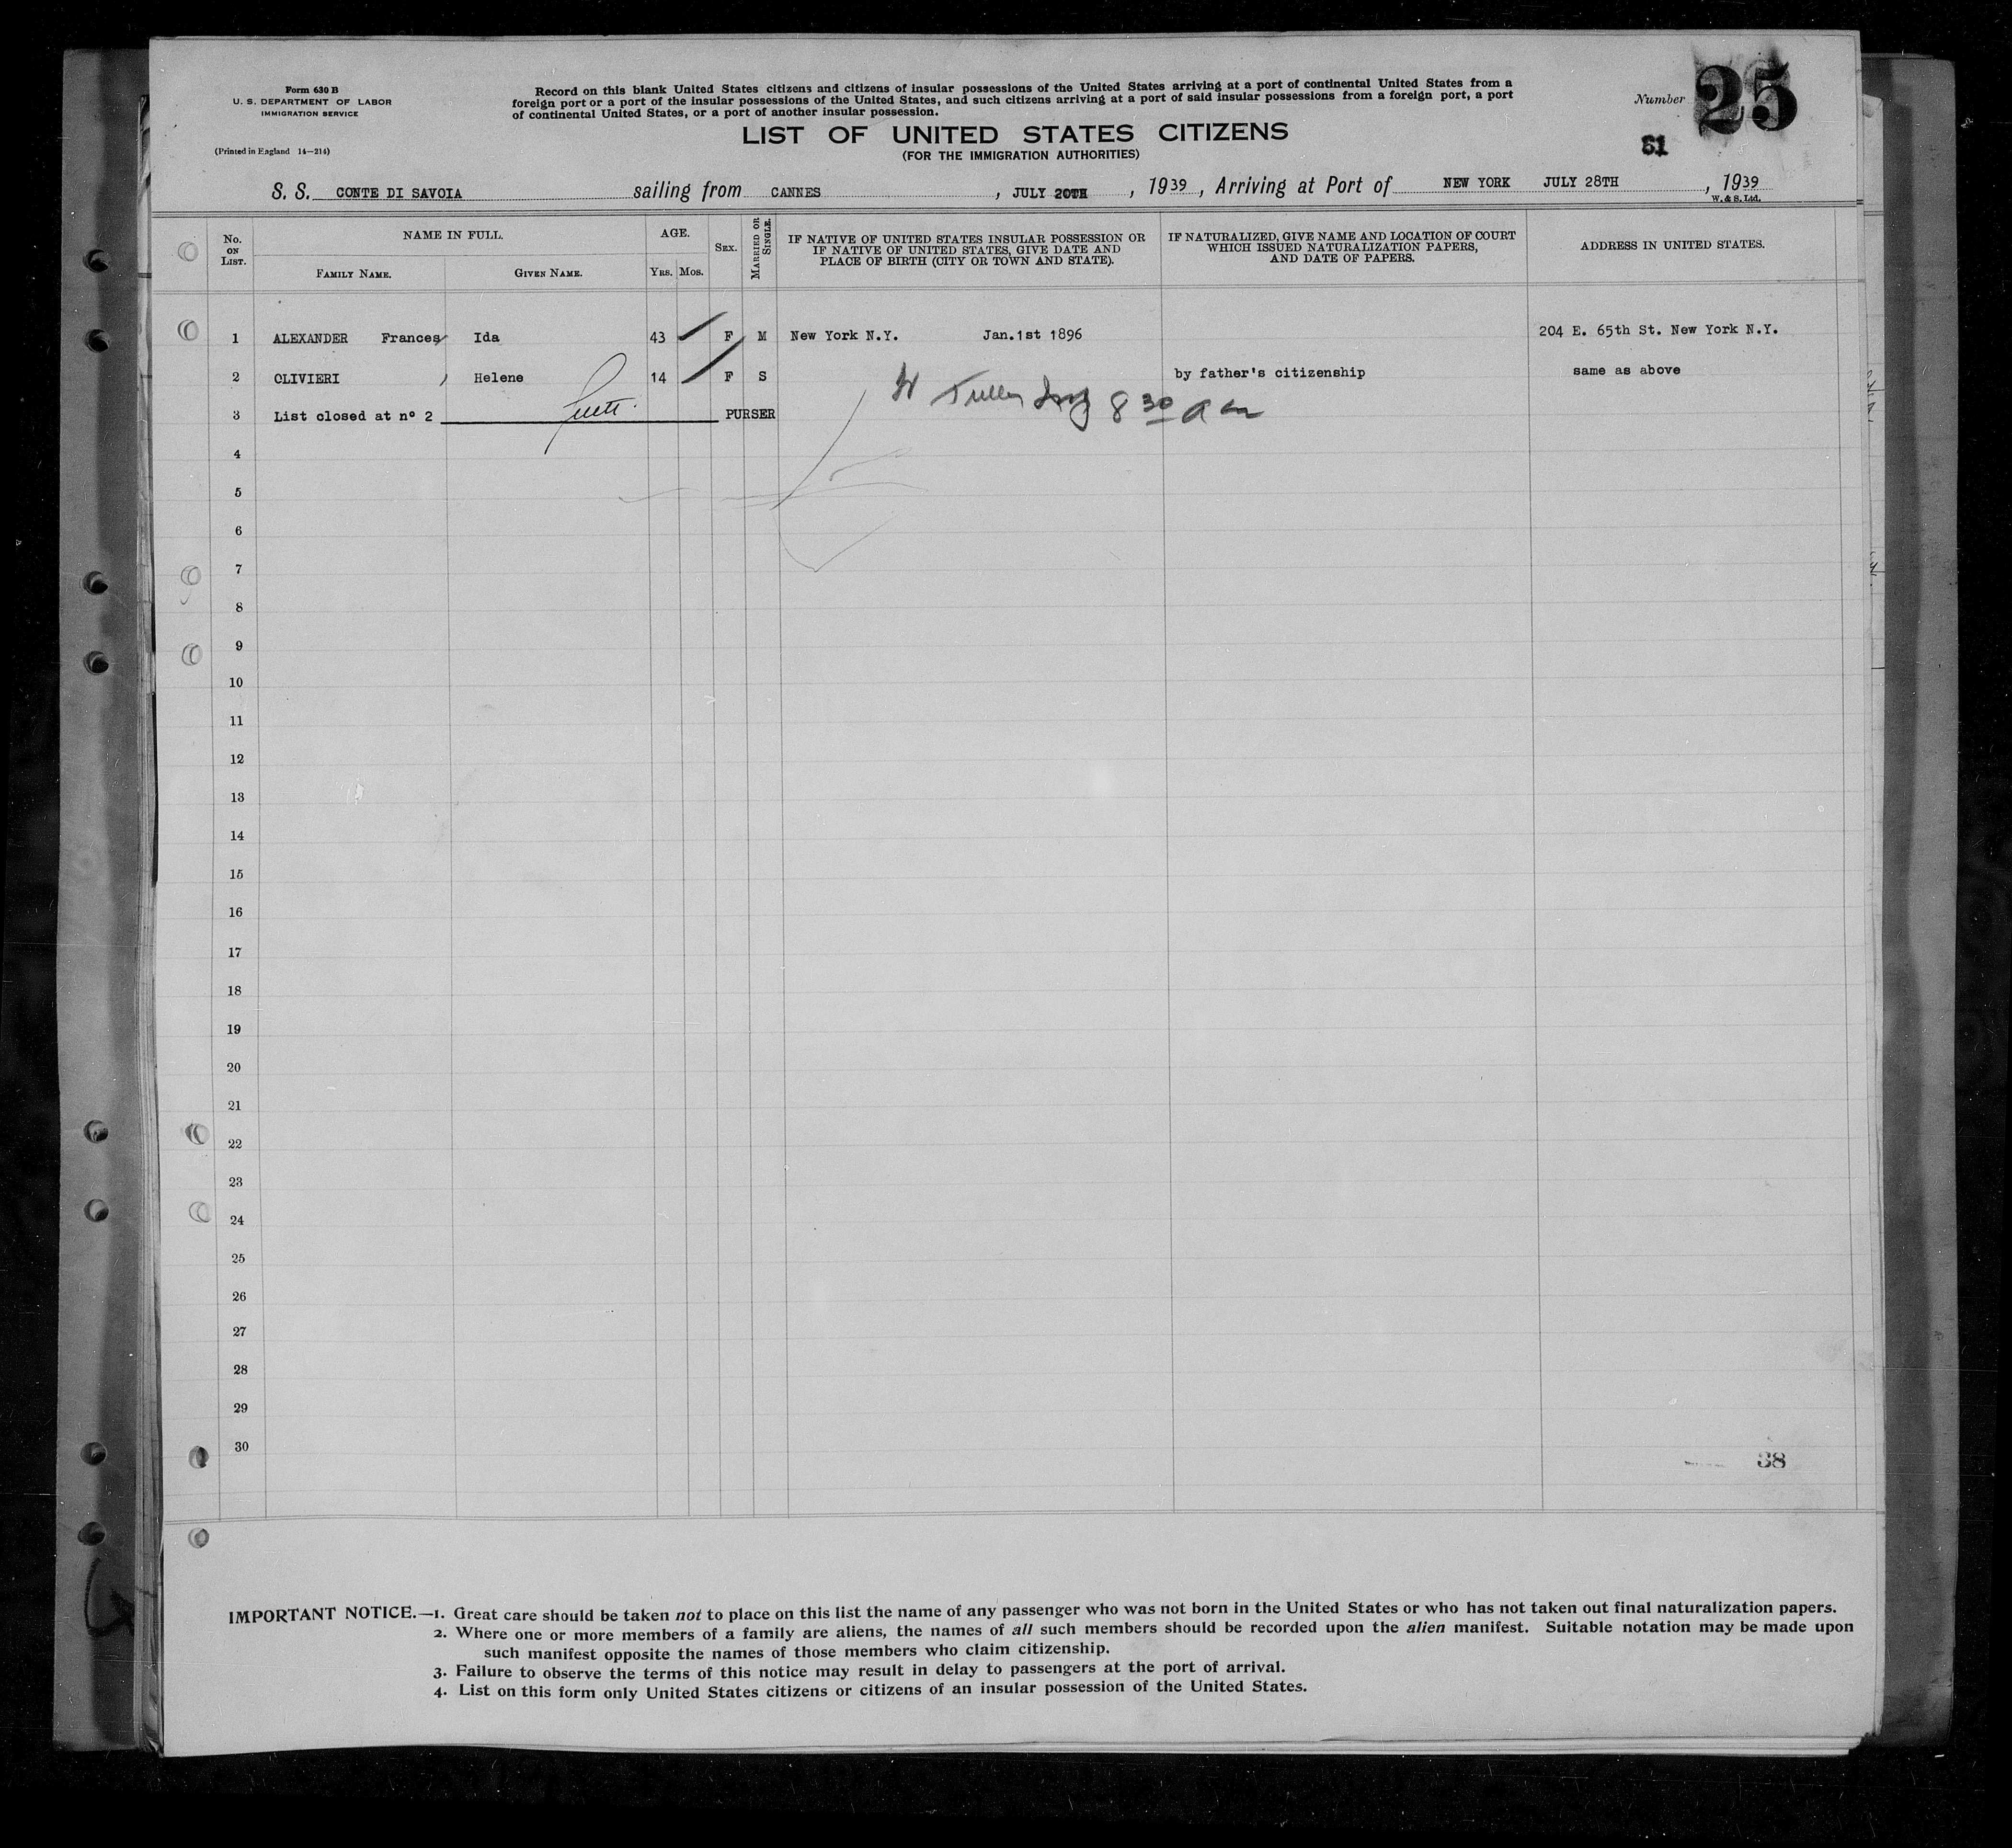 Form 630 B
U. S. DEPARTMENT OF LABOR
IMMIGRATION SERVICE
(Printed in England 14—214)
Record on this blank United States citizens and citizens of insular possessions of the United States arriving at a port of continental United States from a
foreign port or a port of the insular possessions of the United States, and such citizens arriving at a port of said insular possessions from a foreign port, a port
of continental United States, or a port of another insular possession.
Number 25
LIST OF UNITED STATES CITIZENS
(FOR THE IMMIGRATION AUTHORITIES)
61
S. S. CONTE DI SAVOIA sailing from CANNES, JULY 20TH, 1939, Arriving at Port of NEW YORK JULY 28TH, 1939
W. & S. Ltd.
No. ON LIST.
NAME IN FULL.
FAMILY NAME. GIVEN NAME.
AGE.
YRS. MOS.
SEX.
MARRIED OR SINGLE.
IF NATIVE OF UNITED STATES INSULAR POSSESSION OR
IF NATIVE OF UNITED STATES, GIVE DATE AND
PLACE OF BIRTH (CITY OR TOWN AND STATE).
IF NATURALIZED, GIVE NAME AND LOCATION OF COURT
WHICH ISSUED NATURALIZATION PAPERS,
AND DATE OF PAPERS.
ADDRESS IN UNITED STATES.
1 ALEXANDER Frances Ida 43 F M New York N.Y. Jan.1st 1896 204 E. 65th St. New York N.Y.
2 OLIVIERI Helene 14 F S by father's citizenship same as above
3 List closed at nº 2 PURSER
8 30 a m
4
5
6
7
8
9
10
11
12
13
14
15
16
17
18
19
20
21
22
23
24
25
26
27
28
29
30
38
IMPORTANT NOTICE.—1. Great care should be taken not to place on this list the name of any passenger who was not born in the United States or who has not taken out final naturalization papers.
2. Where one or more members of a family are aliens, the names of all such members should be recorded upon the alien manifest. Suitable notation may be made upon
such manifest opposite the names of those members who claim citizenship.
3. Failure to observe the terms of this notice may result in delay to passengers at the port of arrival.
4. List on this form only United States citizens or citizens of an insular possession of the United States.